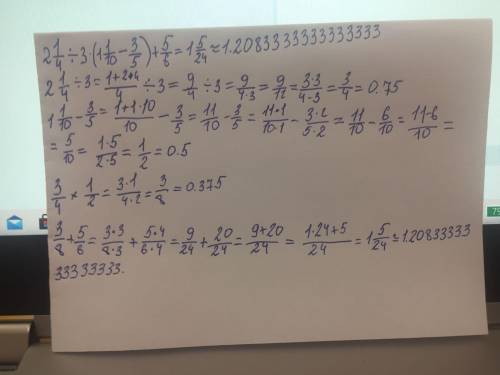 2 1/4 ÷ 3 · (1 1/10 - 3/5) + 5/6 = 1 5/24 ≈ 1.2083333333333333
2 1/4 ÷ 3 = (1+2*4)/4 ÷ 3 = 9/4 ÷ 3 = 9/(4·3) = 9/12 = (3·3)/(4·3) = 3/4 = 0.75
1 1/10 - 3/5 = (1+1·10)/10 - 3/5 = 11/10 - 3/5 = (11*1)/(10·1) - (3·2)/(5·2) = 11/10 - 6/10 = (11-6)/10 =
= 5/10 = (1·5)/(2·5) = 1/2 = 0.5
3/4 × 1/2 = (3·1)/(4·2) = 3/8 = 0.375
3/8 + 5/6 = (3*3)/(8·3) + (5*4)/(6·4) = 9/24 + 20/24 = (9+20)/24 = (1·24+5)/24 = 1 5/24 ≈ 1.20833333
33333333.